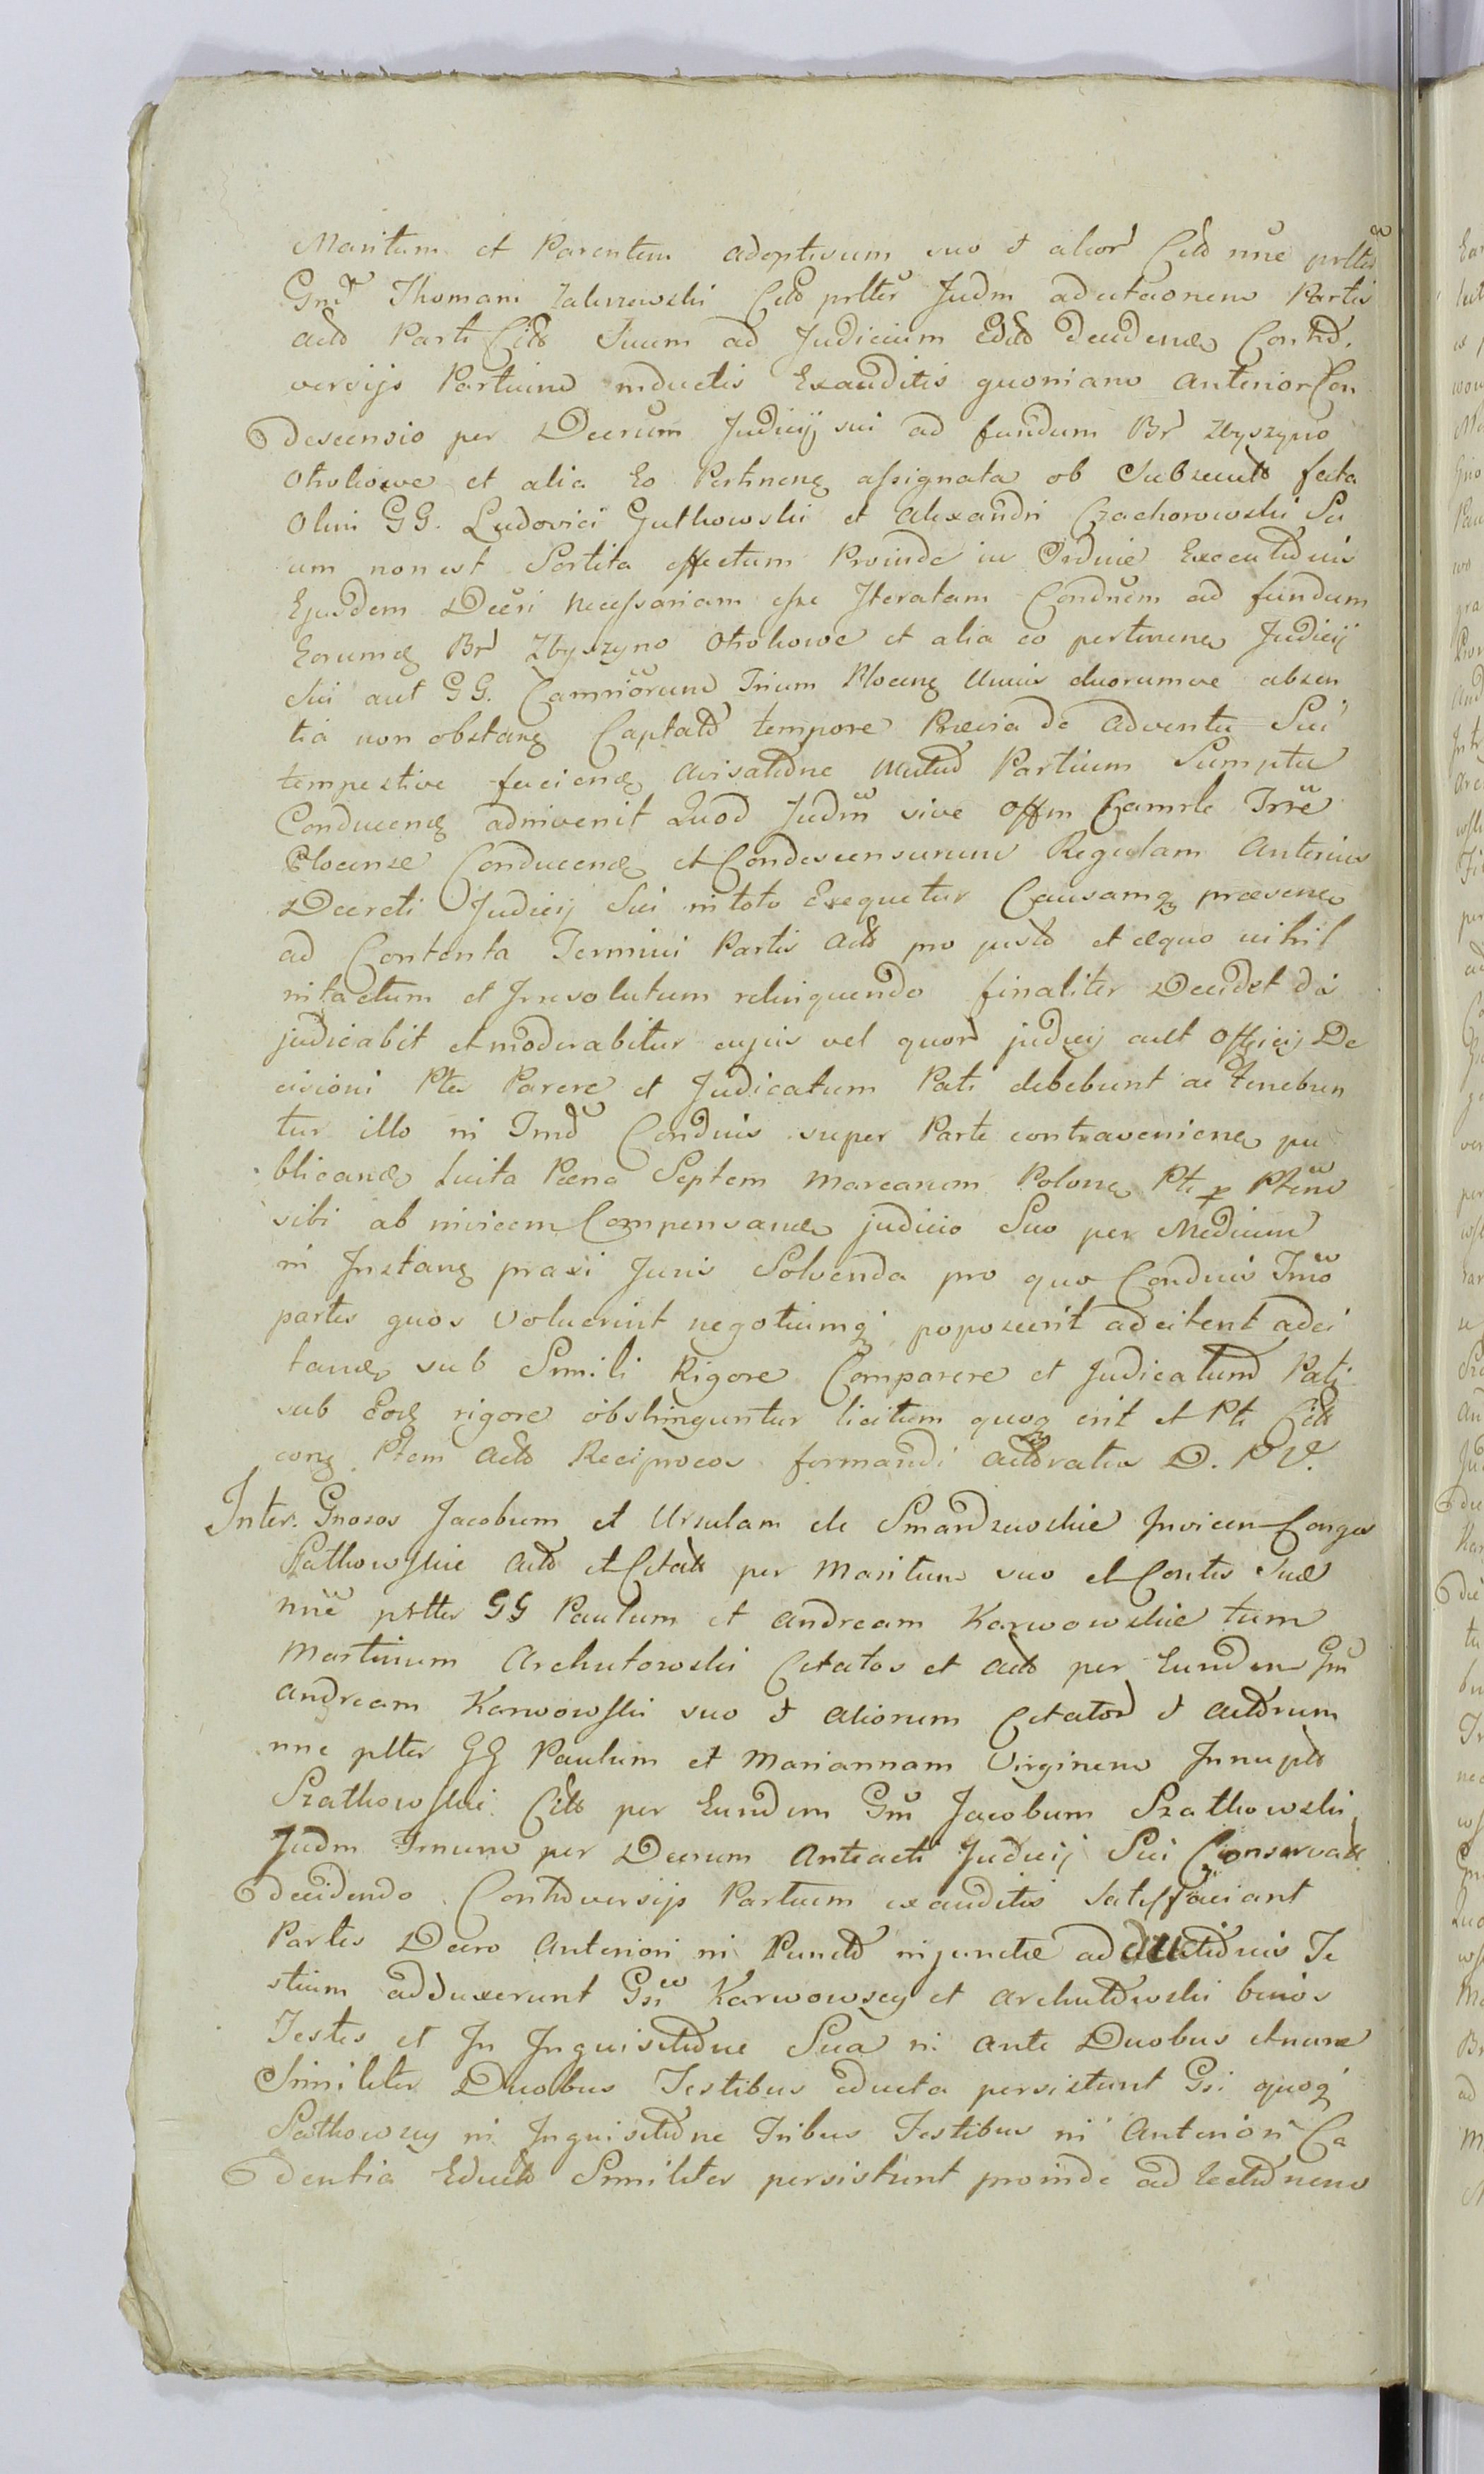 Maritum et Parentem adoptivum suo et alior Citō nñe prltēr
Gm Thomam Zaleszewski Citō prltēr Judm ad citaōnem Partis
actō Parti Citō Suum ad Judicium Edictō Decidenđ Contrō
versijs Partium inductis Exauditis quoniam anterior Con
descensio per Decrum Judicij sui ad fundum Br Zbyszyno
Otrokowe et alia Eo Pertineng assignata ob Subsecutō fata
Olim GG. Ludovici Gutkowski et Alexandri Czachorowski Su
um non est Sortita effectum Proinde in Ordine Executiōnis
Ejusdem Decri necessariam esse Iteratam Condnem ad fundum
Eorumđ Br Zbyszyno Otrokowe et alia eo pertinenđ Judicij
Sui aut GG. Camriorum Trium Plocenđ Unius duorumve absen
tia non obstang Captatō tempore Prævia de adventu Sui
tempestive faciend Avisatiōne Mutuō Partium Sumptu
Conducenđ adinvenit Quod Judm sive Offm Camrle Trre
Plocense Conducenđ et Condescensurum Regulam Anterius
Decreti Judicij Sui in toto Exequetur Causamq præsenđ
ad Contenta Termini Partis Actō pro justō et æquo nihil
intactum et Irresolutum relinquendo finaliter Decidet di
judicabit et moderabitur cujus vel quor judicij aut Officij De
cisioni Ptes Parere et Judicatum Pati debebunt ac tenebun
tur illo in Tmō Condnis super Parte contravenienđ pu
blicanđ Luita Pæna Septem Marcarum Polonđ Pti p Ptem
sibi ab invicem Compensanđ judicio Suo per Medium
in Instang praxi Juris Solvenda pro quo Condnis Tmō
partes quos Voluerint negotiumq poposcerit adcitent adci
tanđ sub Simili Rigore Comparere et Judicatum Pati
sub Eodđ rigore obstringuntur licitum quoq erit et Pti Citō
cong Ptem Actō Reciprocos formandi Actōratus D. P V.
Inter Gnosos Jacobum et Ursulam de Smardzewskie Invicem Conges
Szatkowskie Actō et Citatō per Maritum suo et Contis Suæ
nñe prltēr GG Paulum et Andream Karwowskie tum
Martinum Archutowski Citatos et Actō per Eundem Gm
Andream Karwowski suo et Aliorum Citator et Actōrum
nñe plter GG Paulum et Mariannam Virginem Innuptō
Szatkowskie Citō per Eundem Gm Jacobum Szatkowski
Judm Tmum per Decrum Anteacti Judicij Sui Conservatō
decidendo Contrōversijs Partium exauditis Satisfaciant
Partes Decro Anteriori in Punctō injunctæ adductiōnis Te
stium adduxerunt Gsi Karwowscy et Archutōwski binos
Testes et In Inquisitiōne Sua in ante Duobus et nunc
Similiter Duobus Testibus educta persistunt Gsi quoq
Szatkowscy in Inquisitiōne Tribus Testibus in Anteriori Ca
dentia Eductō Similiter persistunt proinde ad lectiōnem